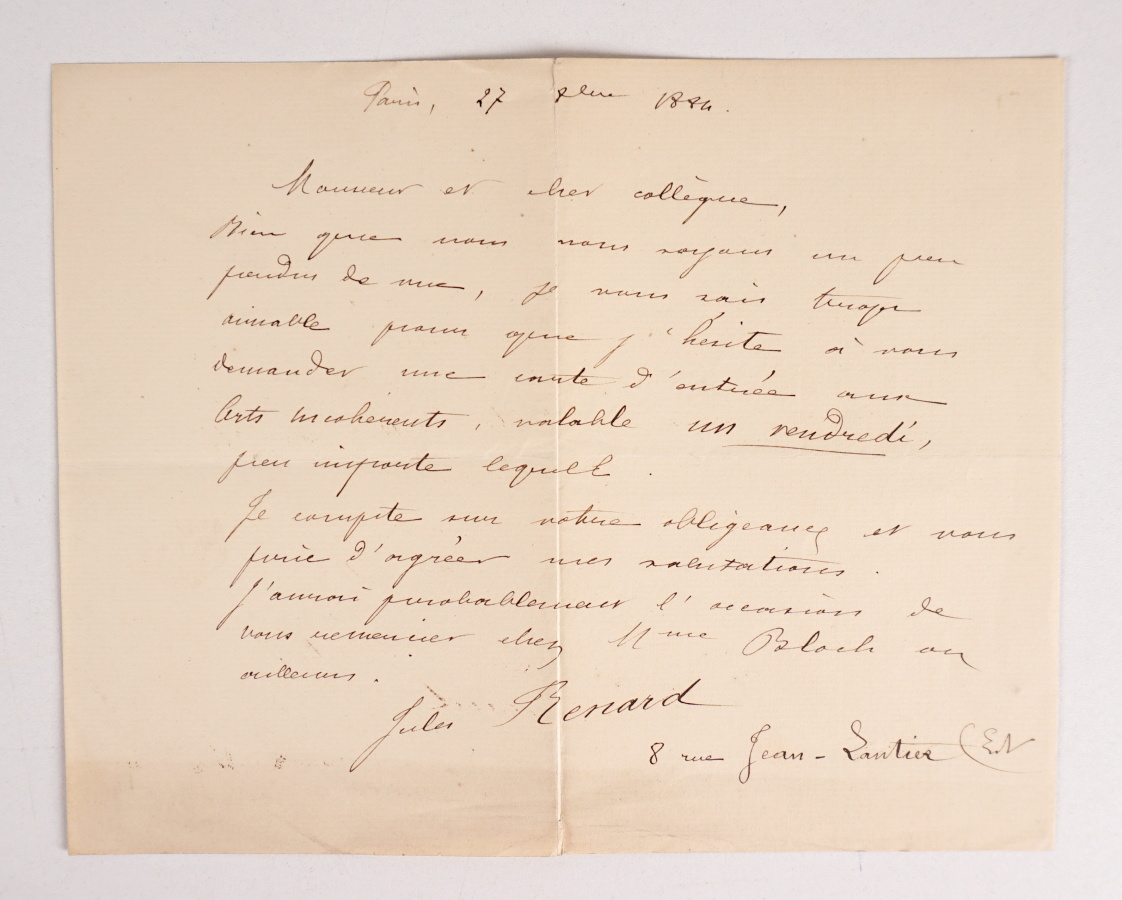 Paris, 27 8bre 1884.
Monsieur et cher collègue,
Bien que nous nous soyons un peu
perdus de vue, je vous sais trop
aimable pour que j'hésite à vous
demander une carte d'entrée aux
Arts incohérents, valable un vendredi,
peu importe lequel.
Je compte sur votre obligeance et vous
prie d'agréer mes salutations.
J'aurai probablement l'occasion de
vous remercier chez Mme Bloch ou
ailleurs.
Jules Renard
8 rue Jean-Lantier